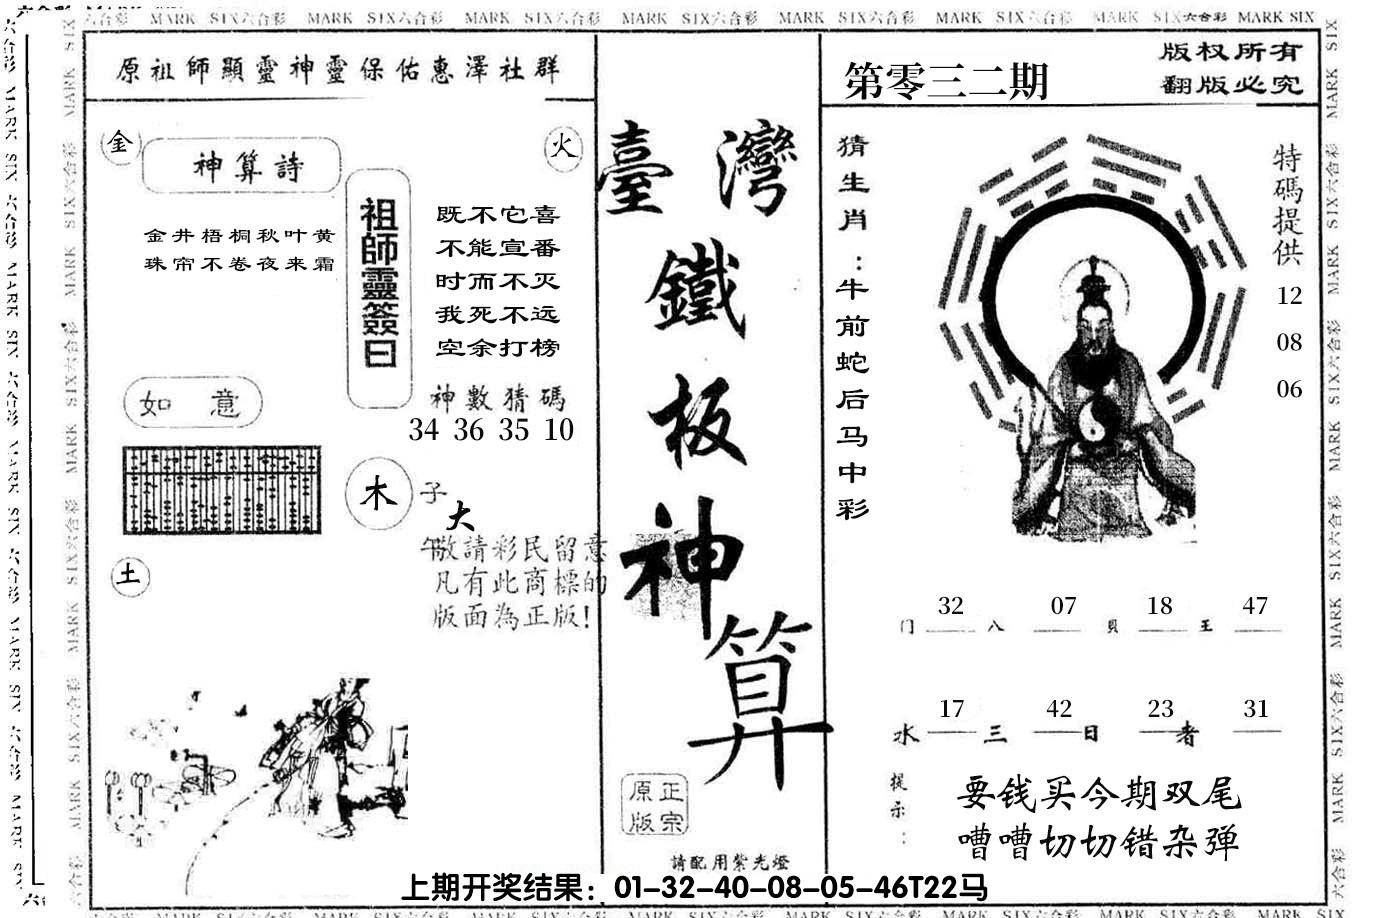 MARK SIX六合彩 MARK SIX六合彩 MARK SIX六合彩 MARK SIX六合彩 MARK SIX六合彩 MARK SIX六合彩 MARK SIX六合彩 MARK SIX
原祖師顯靈神靈保佑惠澤社群
金
火
神算詩
金井梧桐秋叶黄
珠帘不卷夜来霜
祖師靈簽曰
既不它喜
不能宣番
时而不灭
我死不远
空余打榜
如 意
神數猜碼
34 36 35 10
木
子
大
午敬請彩民留意
凡有此商標的
版面為正版!
土
臺灣
鐵
板
神
算
正宗
原版
請配用紫光燈
第零三二期
版权所有
翻版必究
猜生肖:牛前蛇后马中彩
特碼提供
12
08
06
32 07 18 47
门 八 貝 王
17 42 23 31
水 三 日 者
提示:
要钱买今期双尾
嘈嘈切切错杂弹
上期开奖结果：01-32-40-08-05-46T22马